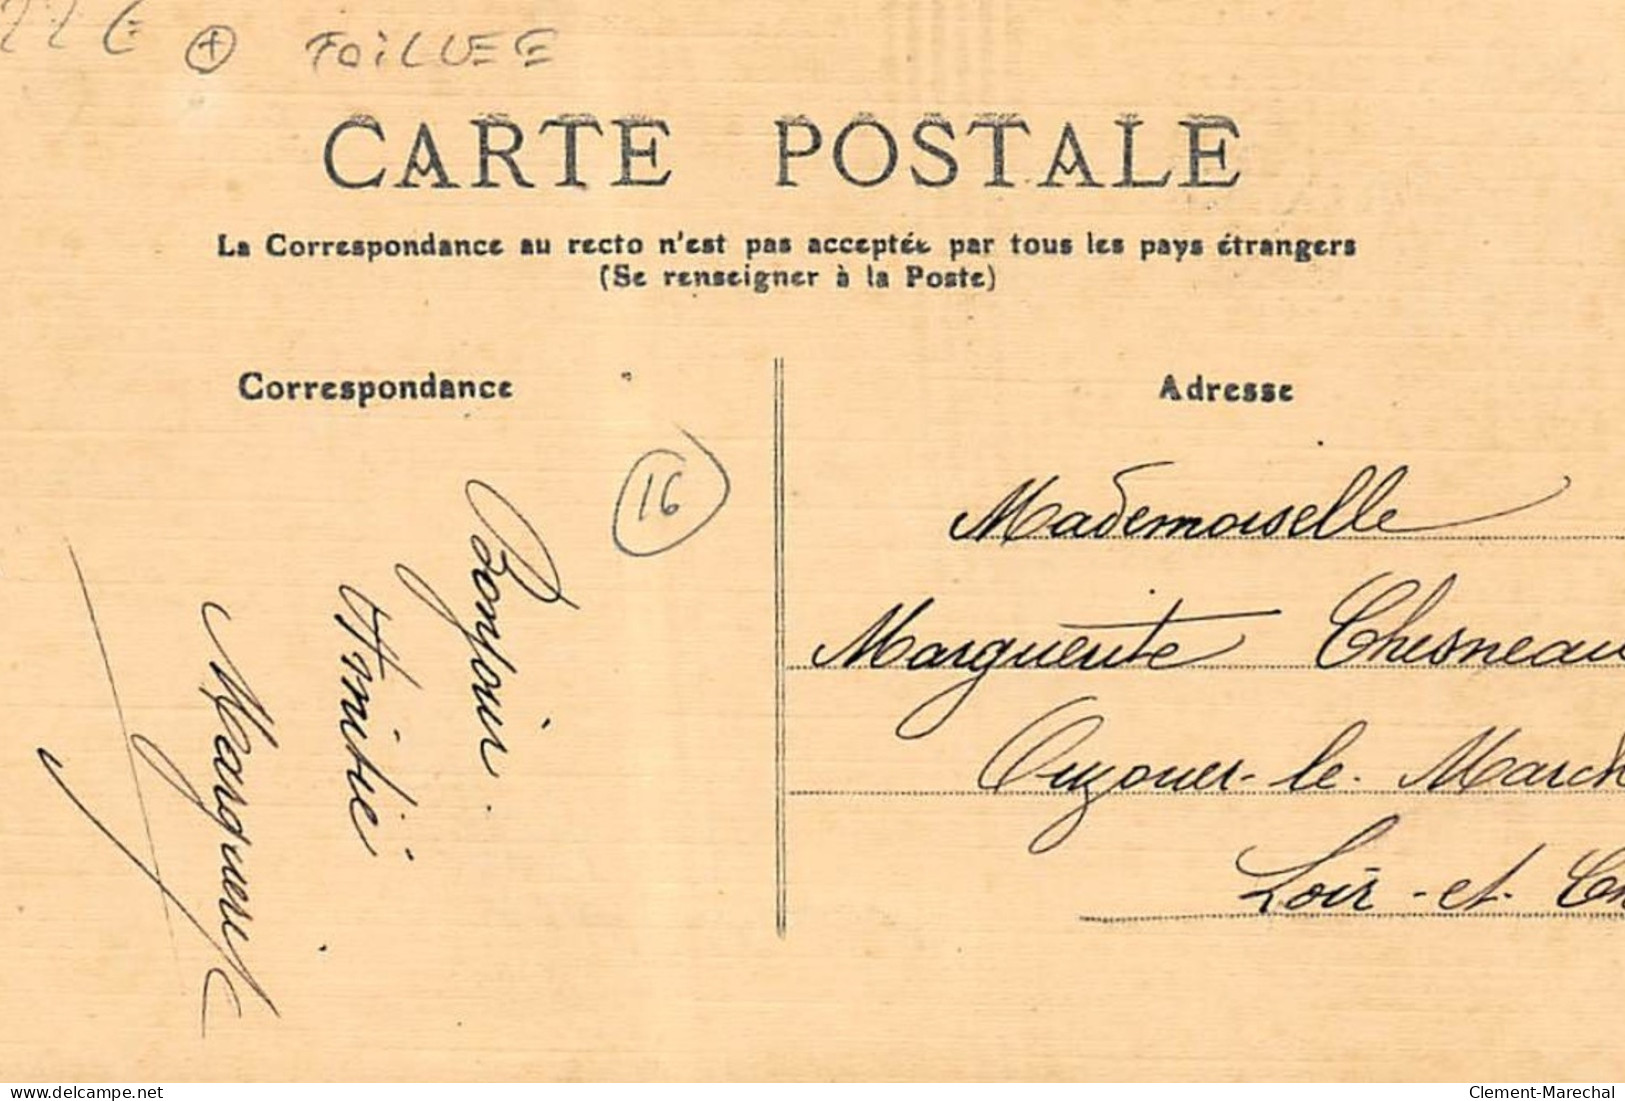 22 €
+
TOILUEE
CARTE POSTALE
La Correspondance au recto n'est pas acceptée par tous les pays étrangers
(Se renseigner à la Poste)
Correspondance
16
Bonjour.
Amitié
Marguerite
Adresse
Mademoiselle
Marguerite Chesneau
Ouzouer-le-March
Loir-et-Ch
delcampe.net
Clement-Marechal